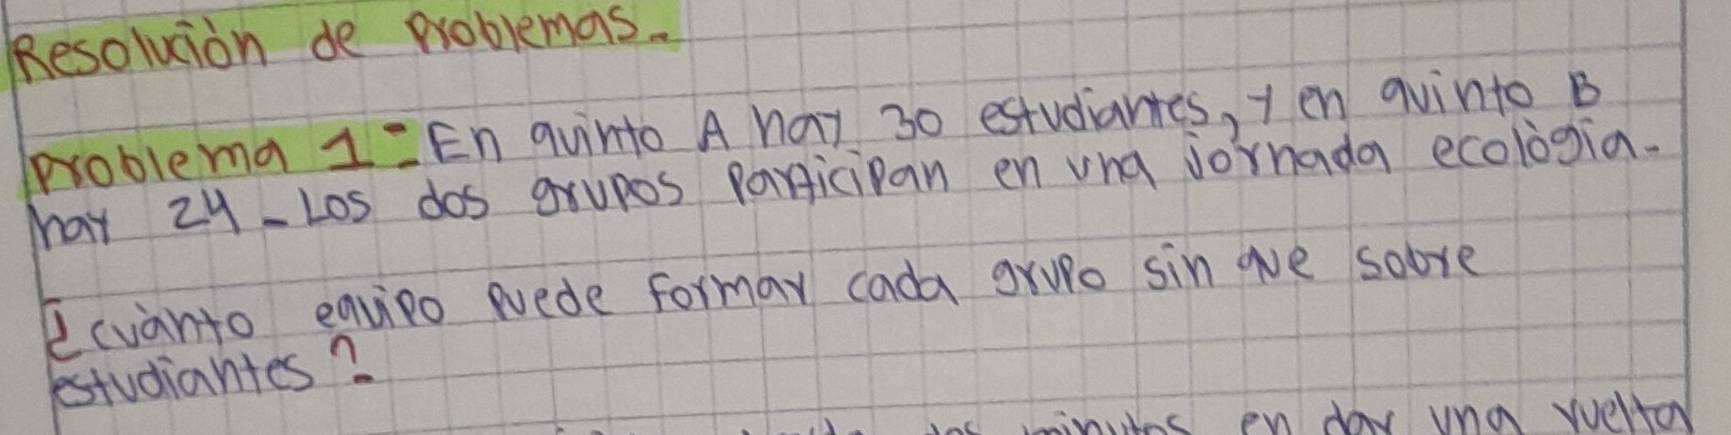 Resolución de problemas.
problema 1: En quinto A hay 30 estudiantes, y en quinto B
hay 24 - Los dos grupos participan en una jornada ecològia.
¿cuànto equipo puede formar cada grupo sin que sobre
estudiantes?
minutos en dar una vuelta